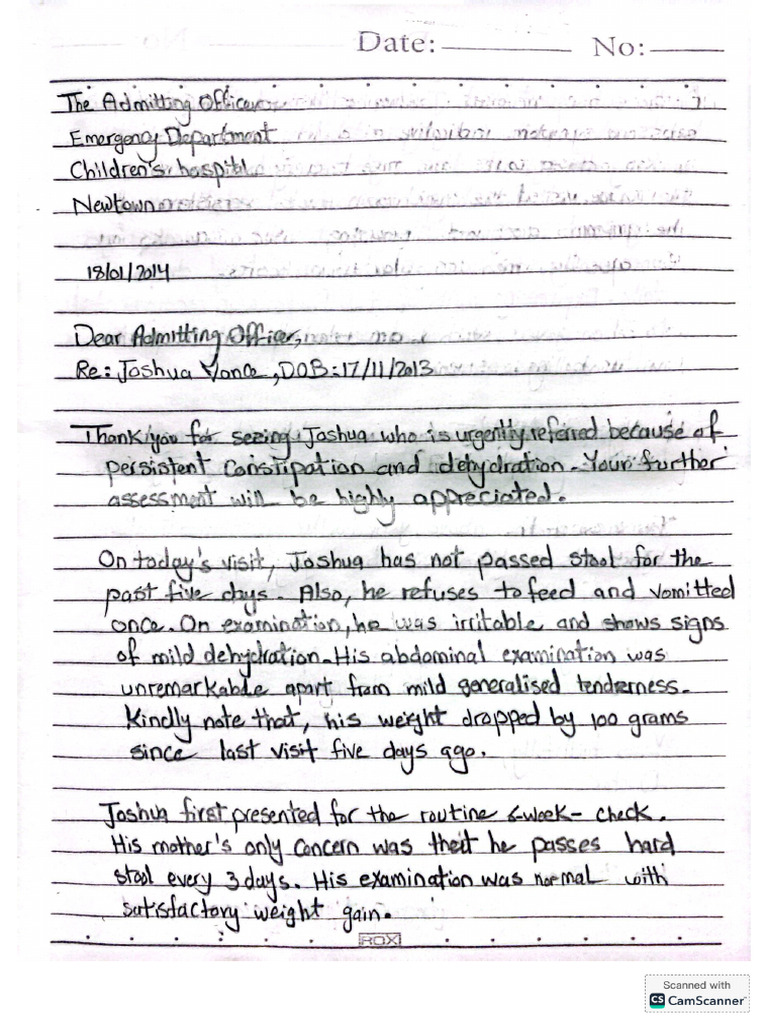 Date: No:
The Admitting Officer,
Emergency Department
Children's hospitl
Newtown
18/01/2014
Dear Admitting Officer,
Re: Joshua Vance, DOB: 17/11/2013
Thank you for seeing Joshua who is urgently referred because of
persistent constipation and dehydration. Your further
assessment will be highly appreciated.
On today's visit, Joshua has not passed stool for the
past five days. Also, he refuses to feed and vomitted
once. On examination, he was irritable and shows signs
of mild dehydration. His abdominal examination was
unremarkable apart from mild generalised tenderness.
Kindly note that, his weight dropped by 100 grams
since last visit five days ago.
Joshua first presented for the routine 6-week- check.
His mother's only concern was that he passes hard
stool every 3 days. His examination was normal with
satisfactory weight gain.
ROX
Scanned with
CS CamScanner